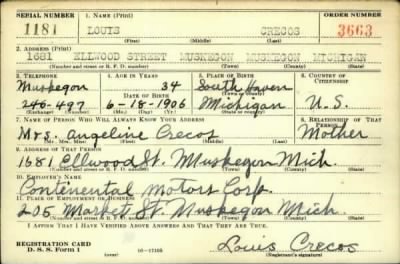 SERIAL NUMBER 1. NAME (Print) ORDER NUMBER
1181 LOUIS CRECOS 3663
(First) (Middle) (Last)
2. ADDRESS (Print)
1681 ELLWOOD STREET MUSKEGON MUSKEGON MICHIGAN
(Number and street or R. F. D. number) (Town) (County) (State)
3. TELEPHONE 4. AGE IN YEARS 5. PLACE OF BIRTH 6. COUNTRY OF CITIZENSHIP
Muskegon 34 South Haven
DATE OF BIRTH (Town or county)
246-497 6-18-1906 Michigan U.S.
(Exchange) (Number) (Mo.) (Day) (Yr.) (State or country)
7. NAME OF PERSON WHO WILL ALWAYS KNOW YOUR ADDRESS 8. RELATIONSHIP OF THAT PERSON
Mrs. Angeline Crecos Mother
(Mr., Mrs., Miss) (First) (Middle) (Last)
9. ADDRESS OF THAT PERSON
1681 Ellwood St. Muskegon Mich.
(Number and street or R. F. D. number) (Town) (County) (State)
10. EMPLOYER'S NAME
Continental Motors Corp.
11. PLACE OF EMPLOYMENT OR BUSINESS
205 Market St. Muskegon Mich.
(Number and street or R. F. D. number) (Town) (County) (State)
I AFFIRM THAT I HAVE VERIFIED ABOVE ANSWERS AND THAT THEY ARE TRUE.
REGISTRATION CARD
D. S. S. Form 1 (over) 16-17105 Louis Crecos
(Registrant's signature)